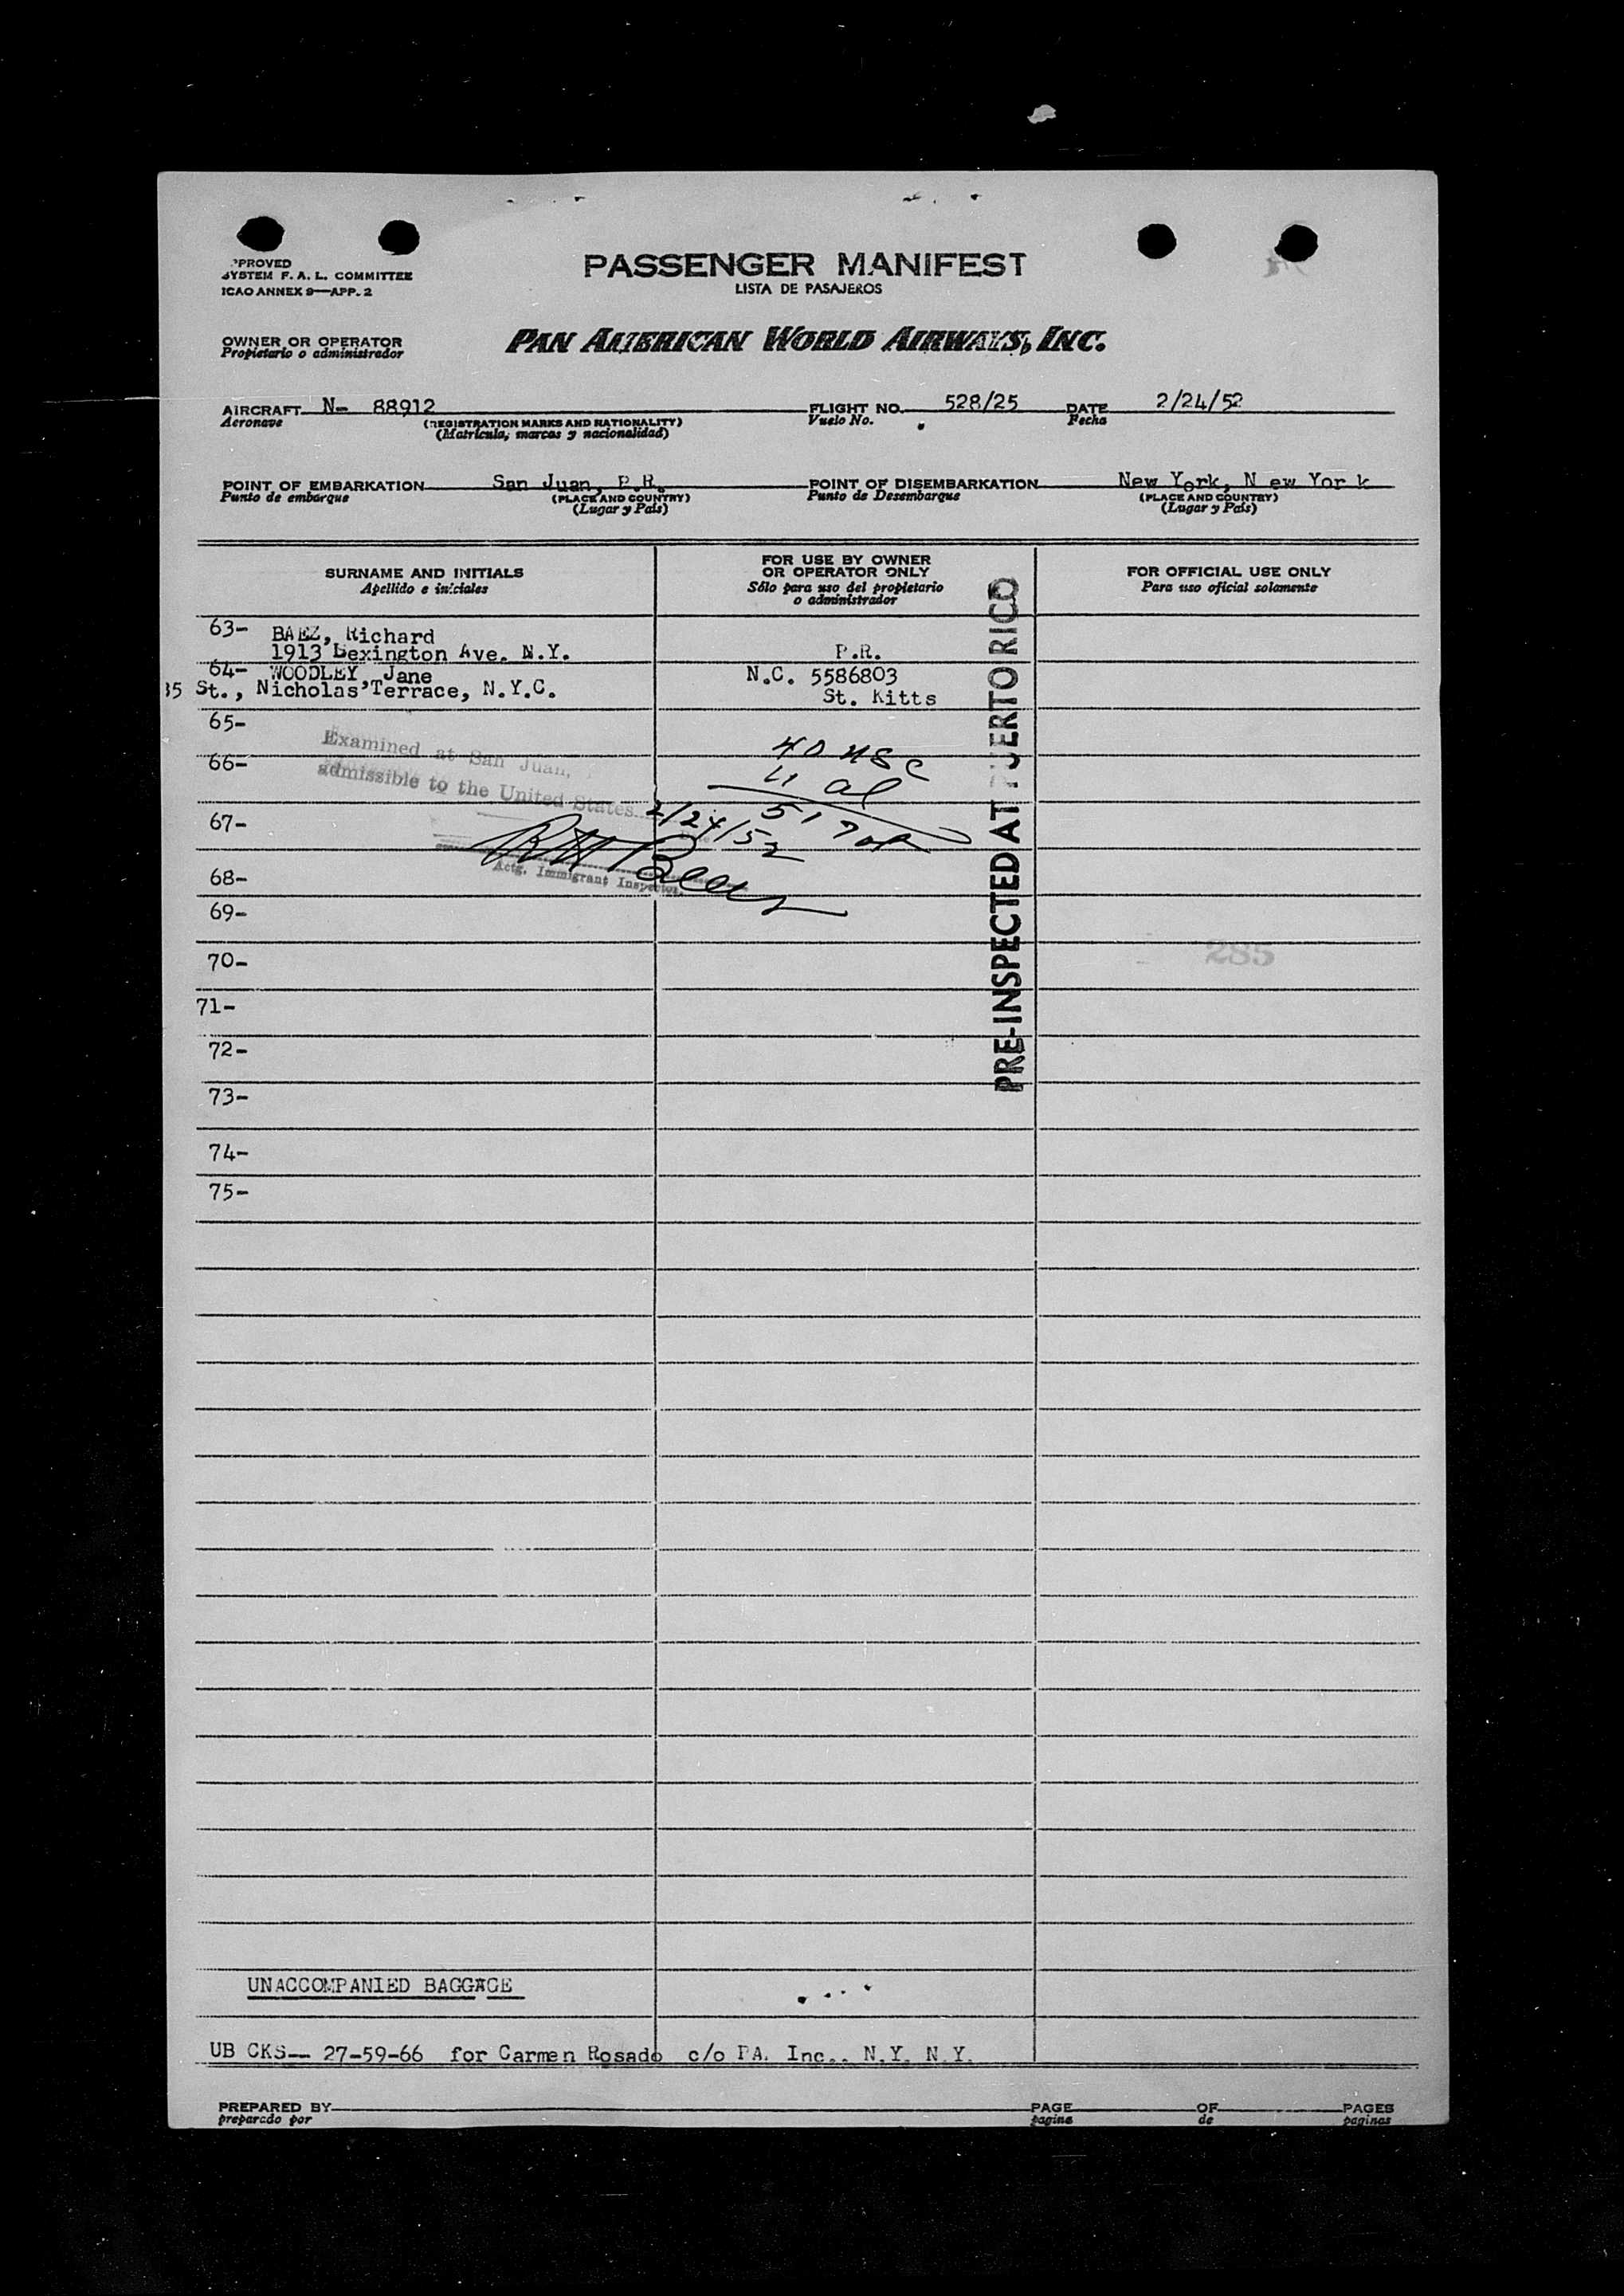 PPROVED
SYSTEM F. A. L. COMMITTEE
ICAO ANNEX 9—APP. 2
PASSENGER MANIFEST
LISTA DE PASAJEROS
OWNER OR OPERATOR
Propietario o administrador
PAN AMERICAN WORLD AIRWAYS, INC.
AIRCRAFT N- 88912 FLIGHT NO. 528/25 DATE 2/24/52
Aeronave (REGISTRATION MARKS AND NATIONALITY) Vuelo No. Fecha
(Matrícula, marcas y nacionalidad)
POINT OF EMBARKATION San Juan, P.R. POINT OF DISEMBARKATION New York, N ew Yor k
Punto de embarque (PLACE AND COUNTRY) Punto de Desembarque (PLACE AND COUNTRY)
(Lugar y País) (Lugar y País)
SURNAME AND INITIALS
Apellido e iniciales
FOR USE BY OWNER
OR OPERATOR ONLY
Sólo para uso del propietario
o administrador
FOR OFFICIAL USE ONLY
Para uso oficial solamente
63- BAEZ, Richard
1913 Lexington Ave. N.Y. P.R.
64- WOODLEY Jane N.C. 5586803
35 St., Nicholas Terrace, N.Y.C. St. Kitts
65-
Examined at San Juan,
66-
admissible to the United States
40 USC
11 al
51
2/24/52
67-
Actg. Immigrant Inspector
68-
69-
PRE-INSPECTED AT PUERTO RICO
285
70-
71-
72-
73-
74-
75-
UNACCOMPANIED BAGGAGE
UB CKS-- 27-59-66 for Carmen Rosado c/o PA. Inc.. N.Y. N.Y.
PREPARED BY PAGE OF PAGES
preparado por pagina de paginas